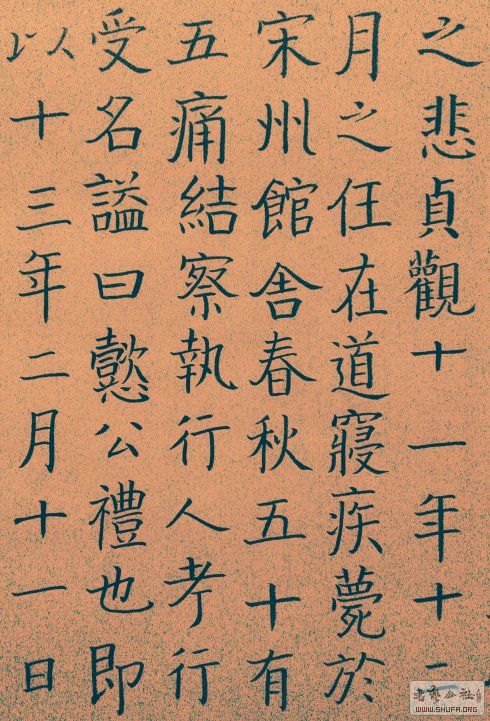 之悲貞觀十一年十二
月之任在道寢疾薨於
宋州館舍春秋五十有
五痛結察執行人考行
受名謚曰懿公禮也即
以十三年二月十一日
書藝公社
WWW.SHUFA.ORG